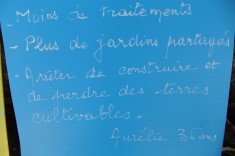 - Moins de traitements
- Plus de jardins partagés
- Arrêter de construire et
de perdre des terres
cultivables.
Aurélie 36 ans